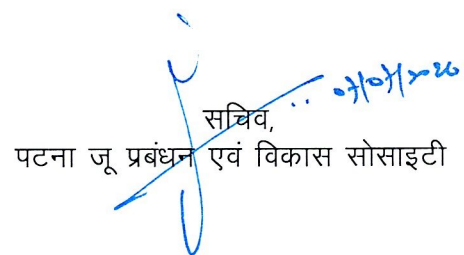 07/07/2020
सचिव,
पटना जू प्रबंधन एवं विकास सोसाइटी